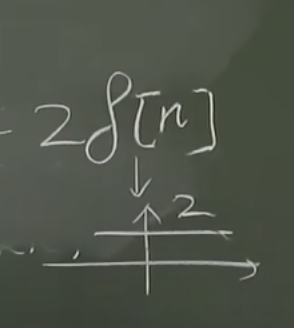 - 2δ[n]
2